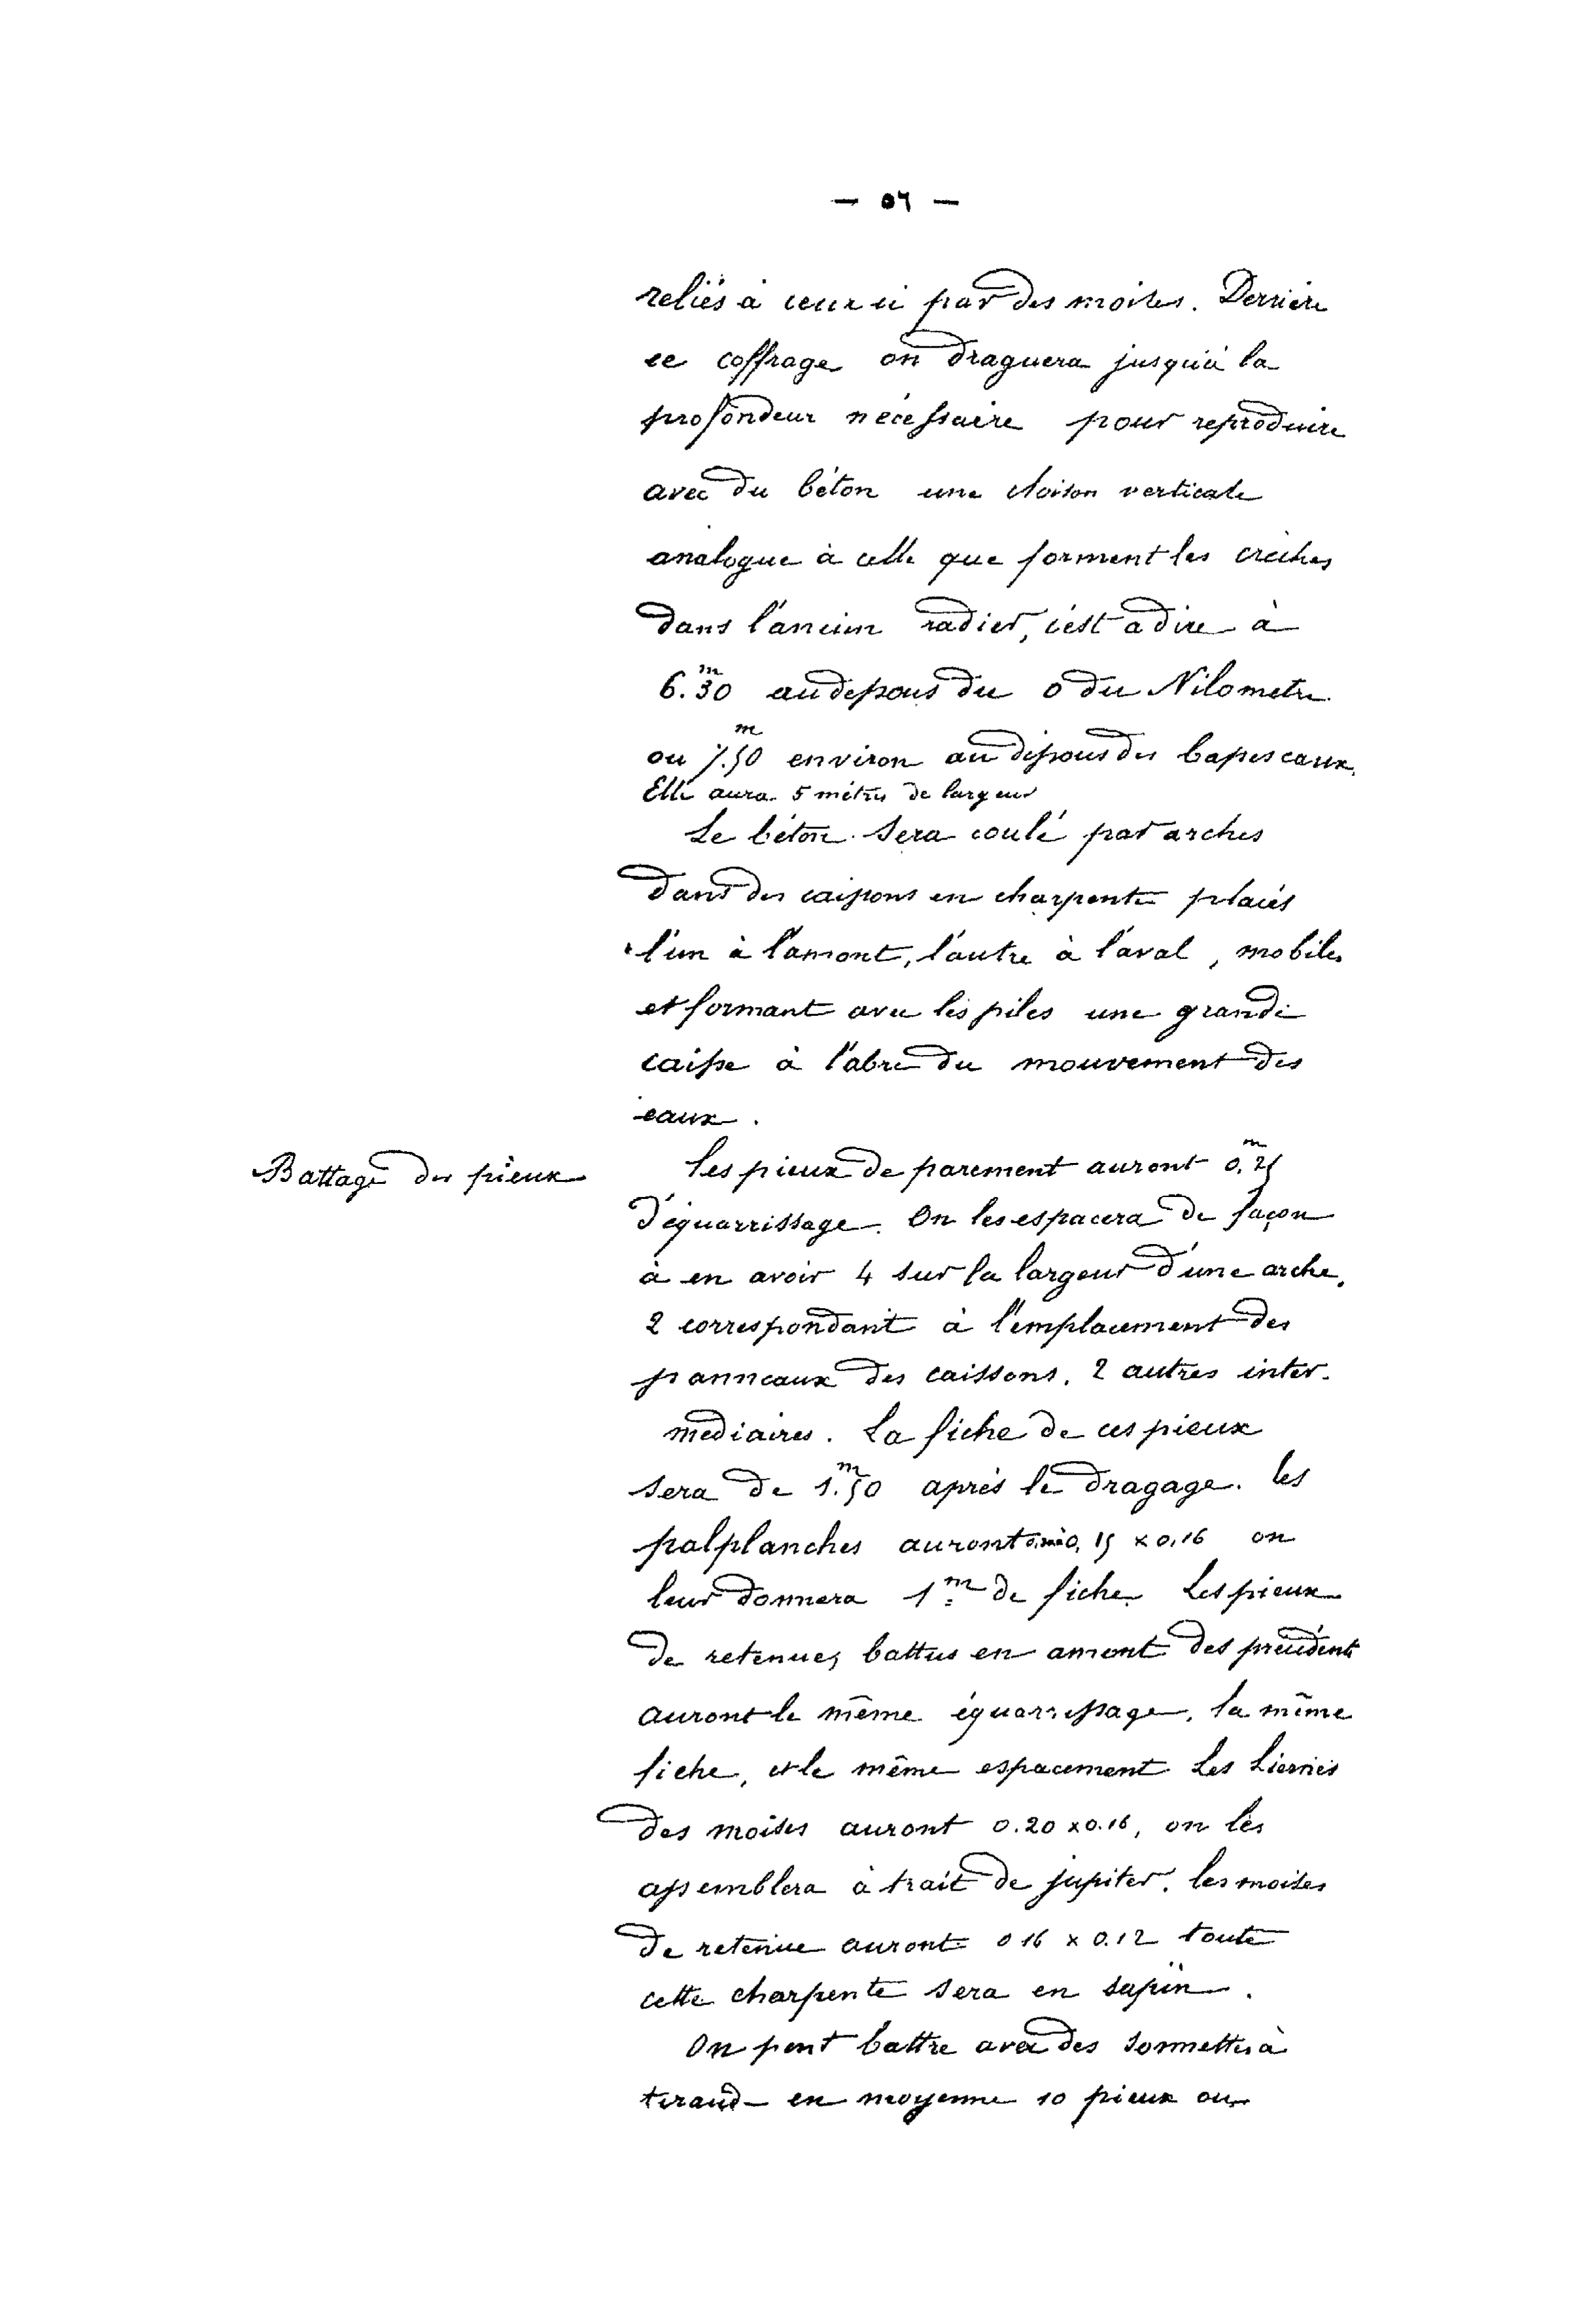 — ٥٦ —
reliés à ceux ci par des moises. Derrière
ce coffrage on draguera jusqu'à la
profondeur nécessaire pour reproduire
avec du béton une cloison verticale
analogue à celle que forment les crèches
dans l'ancien radier, c'est à dire à
6.30 m au dessous du 0 du Nilomètre
ou 7.50 m environ au dessous des basses eaux.
Elle aura 5 mètres de largeur
Le béton sera coulé par arches
dans des caissons en charpente placés
l'un à l'amont, l'autre à l'aval, mobiles
et formant avec les piles une grande
caisse à l'abri du mouvement des
eaux.
Battage des pieux
Les pieux de parement auront 0,25 m
d'équarrissage. On les espacera de façon
à en avoir 4 sur la largeur d'une arche.
2 correspondant à l'emplacement des
panneaux des caissons. 2 autres inter-
médiaires. La fiche de ces pieux
sera de 1.50 m après le dragage. les
palplanches auront 0,15 x 0,16 on
leur donnera 1 m de fiche. Les pieux
de retenue, battus en amont des précédents
auront le même équarrissage, la même
fiche, et le même espacement Les Liernes
des moises auront 0.20 x 0.16, on les
assemblera à trait de jupiter. les moises
de retenue auront 0 16 x 0.12 toute
cette charpente sera en sapin.
On peut battre avec des sonnettes à
tiraud en moyenne 10 pieux ou